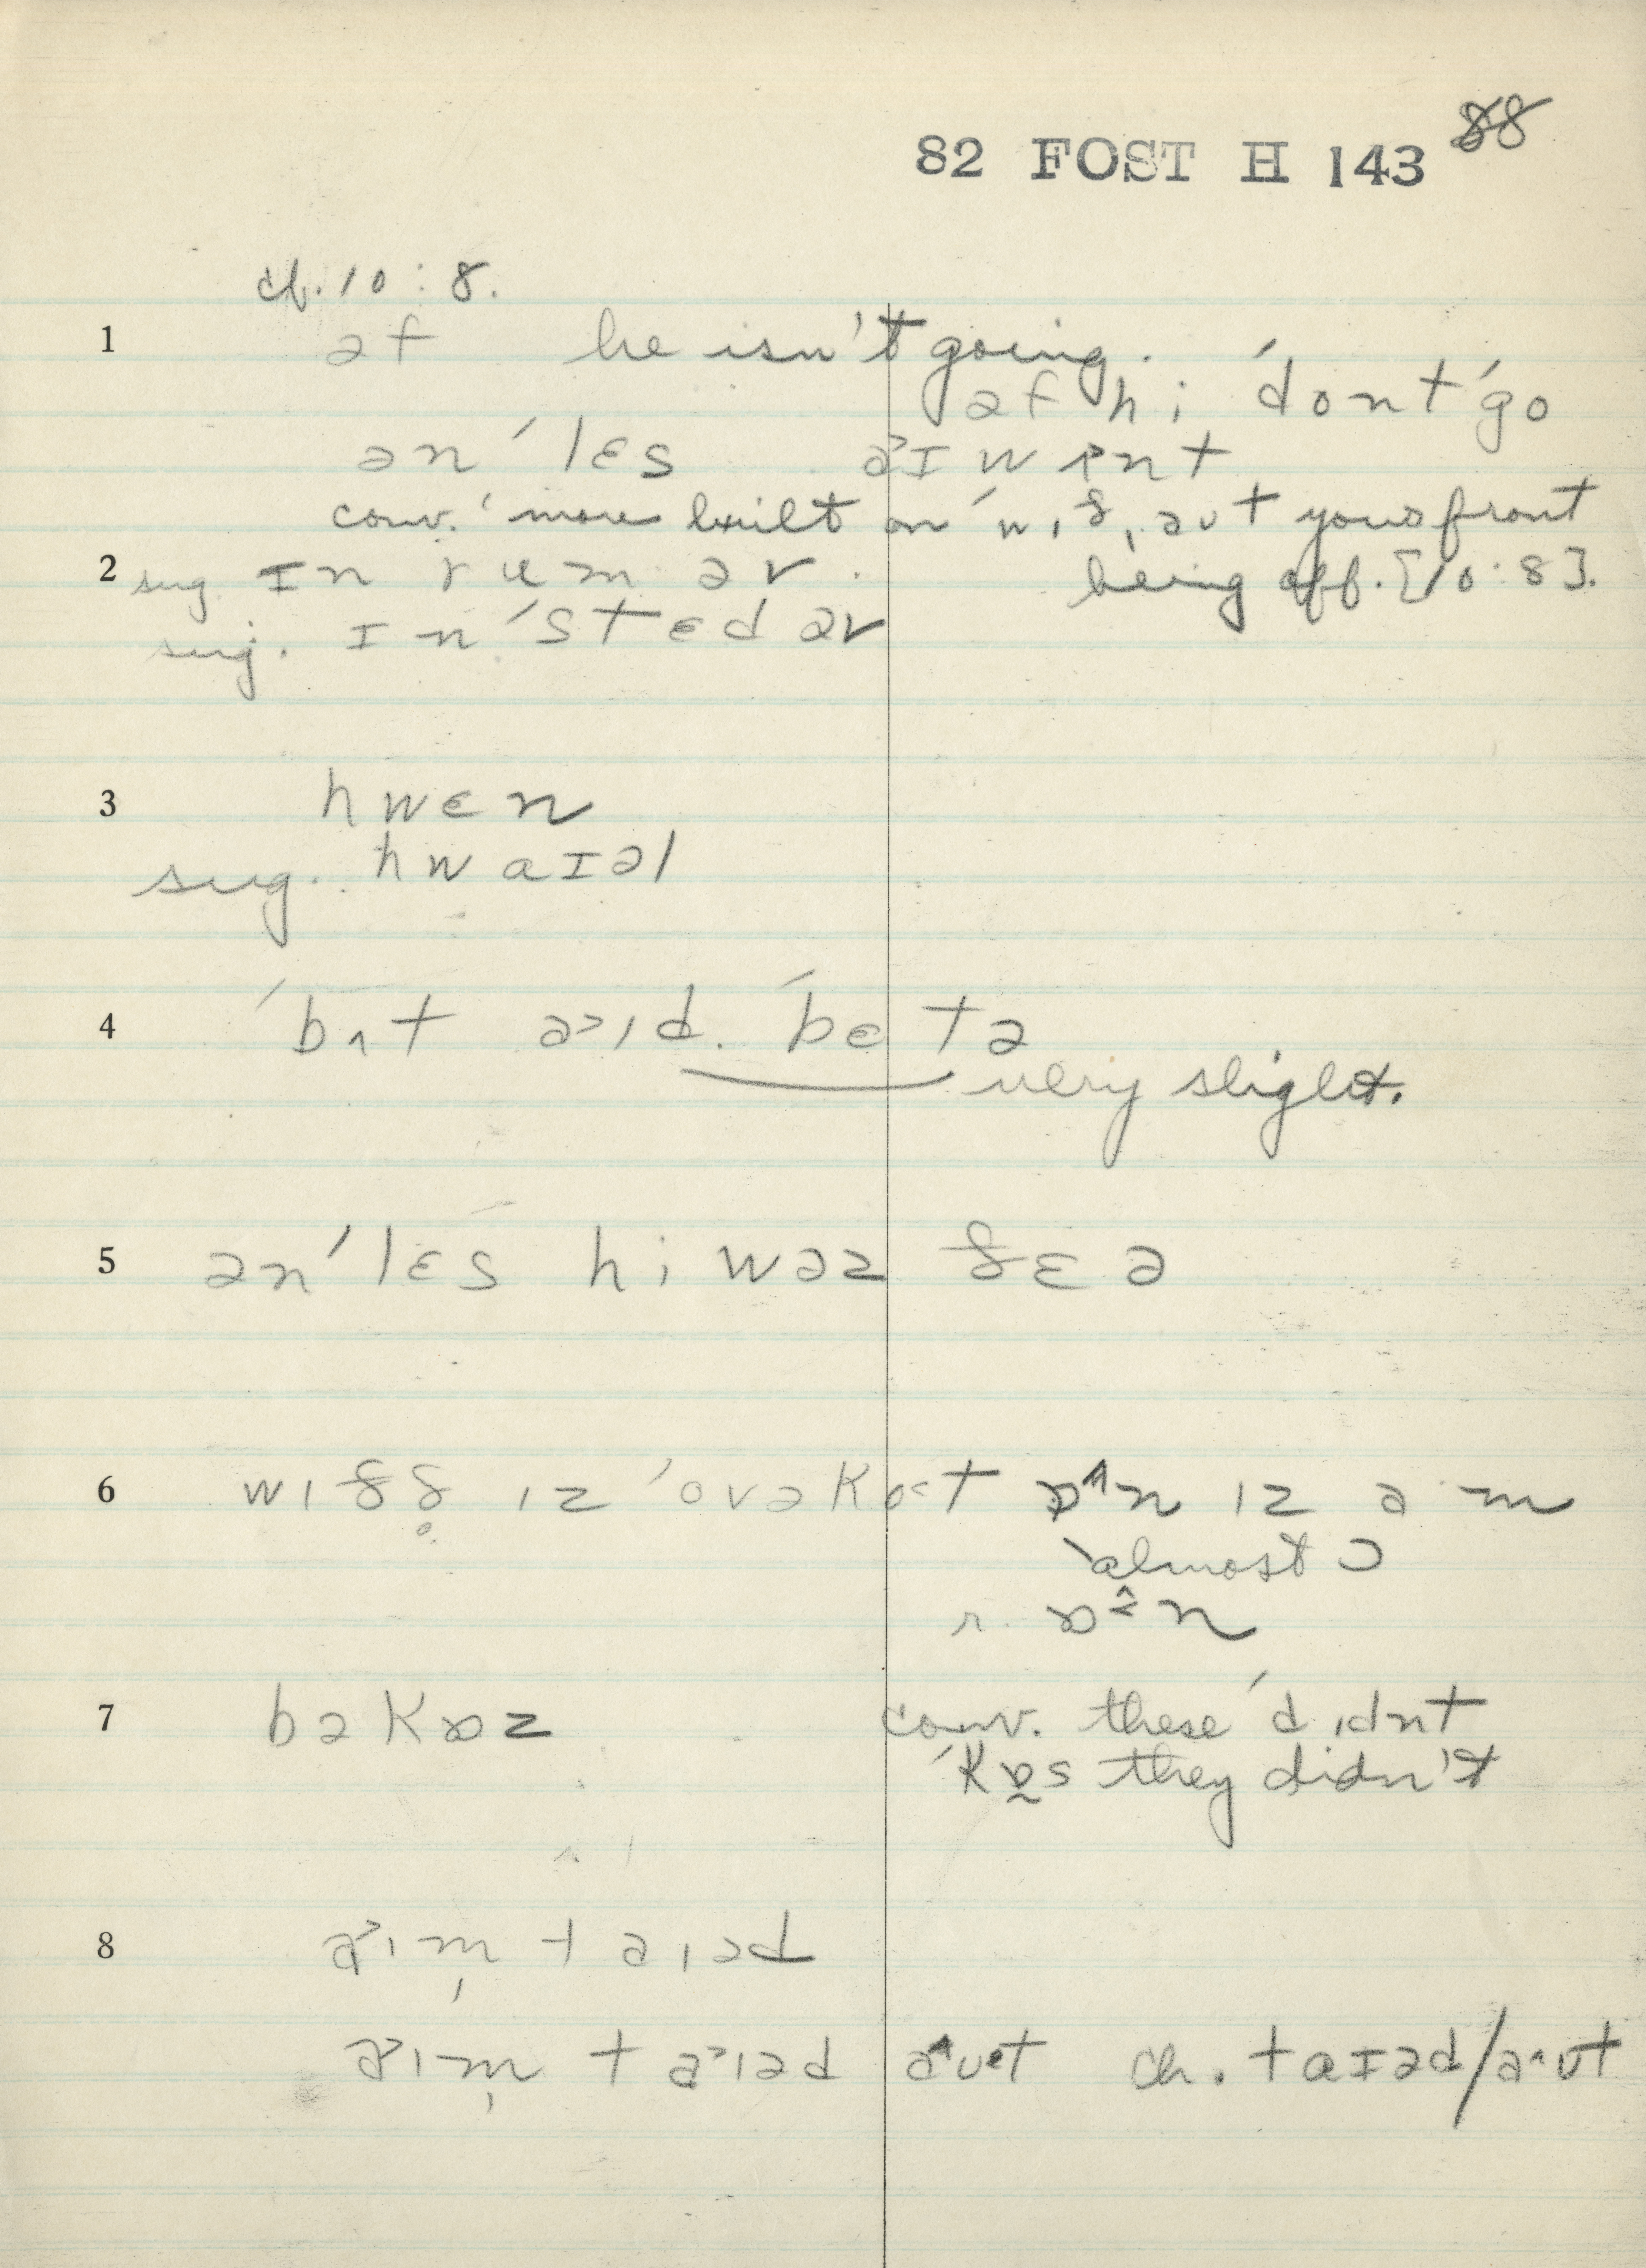 82 FOST H 143 88
cf. 10:8.
1 əf he isn't going.
əf hi ˈdontˈgo
ənˈlɛs
conv. ˈmore built on ˈwɪð,əʊt yours front
2 sug. ɪn rum əv. being off. [10:8].
sug. ɪnˈstɛd əv
3 hwɛn
sug. hwaɪəl
4 ˈbʌt a˃ɪd. ˈbɛtə
very slight.
5 ənˈlɛs hi wəz ðɛə
6 wɪðð̥ ɪz ˈovəkɒ˂t ɒ^n ɪz aˑm
almost ɔ
r. ɒn
7 bəkɒz conv. these ˈdɪdnt
ˈkɒs they didn't
8 a˃ɪm̩ taɪəd
a˃ɪm̩ ta˃ɪəd a^ʊt ch. taɪəd/a^ʊt